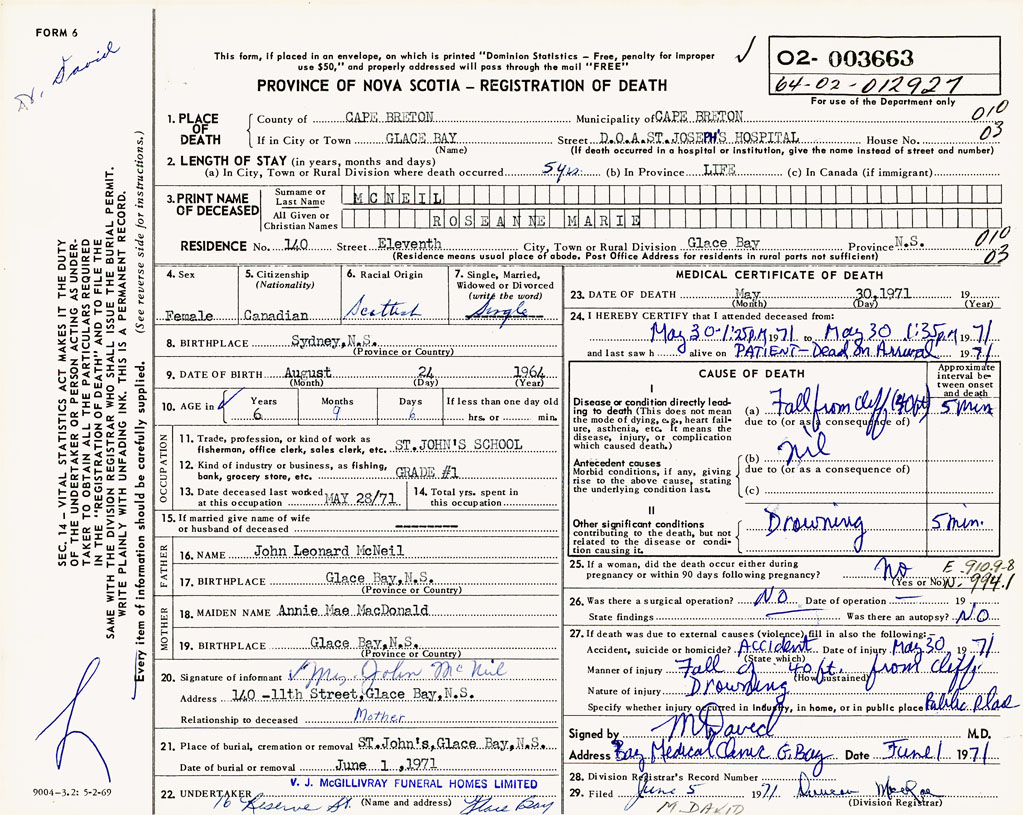 FORM 6
Dr. David
This form, if placed in an envelope, on which is printed "Dominion Statistics – Free, penalty for improper
use $50," and properly addressed will pass through the mail "FREE"
PROVINCE OF NOVA SCOTIA – REGISTRATION OF DEATH
02- 003663
64-02-012927
For use of the Department only
1. PLACE OF DEATH
County of CAPE BRETON Municipality of CAPE BRETON 010
If in City or Town GLACE BAY Street D.O.A.ST.JOSEPH'S HOSPITAL House No. 03
(Name) (If death occurred in a hospital or institution, give the name instead of street and number)
2. LENGTH OF STAY (in years, months and days)
(a) In City, Town or Rural Division where death occurred 5 yrs. (b) In Province LIFE (c) In Canada (if immigrant)
3. PRINT NAME OF DECEASED
Surname or Last Name MCNEIL
All Given or Christian Names ROSEANNE MARIE
RESIDENCE No. 140 Street Eleventh City, Town or Rural Division Glace Bay Province N.S. 010
(Residence means usual place of abode. Post Office Address for residents in rural parts not sufficient) 03
4. Sex
Female
5. Citizenship
(Nationality)
Canadian
6. Racial Origin
Scottish
7. Single, Married,
Widowed or Divorced
(write the word)
Single
8. BIRTHPLACE Sydney,N.S.
(Province or Country)
9. DATE OF BIRTH August 24 1964
(Month) (Day) (Year)
10. AGE in Years Months Days If less than one day old
6 9 6 hrs. or min.
OCCUPATION
11. Trade, profession, or kind of work as
fisherman, office clerk, sales clerk, etc. ST.JOHN'S SCHOOL
12. Kind of industry or business, as fishing,
bank, grocery store, etc. GRADE #1
13. Date deceased last worked
at this occupation MAY 28/71
14. Total yrs. spent in
this occupation
15. If married give name of wife
or husband of deceased --------
FATHER
16. NAME John Leonard McNeil
17. BIRTHPLACE Glace Bay,N.S.
(Province or Country)
MOTHER
18. MAIDEN NAME Annie Mae MacDonald
19. BIRTHPLACE Glace Bay,N.S.
(Province or Country)
20. Signature of informant Mrs. John McNeil
Address 140 -11th Street,Glace Bay,N.S.
Relationship to deceased Mother
21. Place of burial, cremation or removal ST.John's,Glace Bay,N.S.
Date of burial or removal June 1 ,1971
V. J. McGILLIVRAY FUNERAL HOMES LIMITED
22. UNDERTAKER 16 Reserve St. Glace Bay
(Name and address)
MEDICAL CERTIFICATE OF DEATH
23. DATE OF DEATH May 30,1971 19
(Month) (Day) (Year)
24. I HEREBY CERTIFY that I attended deceased from:
May 30-1:25 P.M. 1971 to May 30 1:35 P.M. 1971
and last saw h alive on PATIENT-Dead On Arrival 1971
CAUSE OF DEATH
Approximate interval between onset and death
I
Disease or condition directly leading to death (This does not mean the mode of dying, e.g., heart failure, asthenia, etc. It means the disease, injury, or complication which caused death.)
(a) Fall from cliff (40ft) 5 min
due to (or as a consequence of)
Antecedent causes
Morbid conditions, if any, giving rise to the above cause, stating the underlying condition last.
(b) nil
due to (or as a consequence of)
(c)
II
Other significant conditions contributing to the death, but not related to the disease or condition causing it.
Drowning 5 min.
25. If a woman, did the death occur either during
pregnancy or within 90 days following pregnancy? No
(Yes or No)
E. 910.9-8
N. 994.1
26. Was there a surgical operation? NO Date of operation — 19
State findings — Was there an autopsy? NO
27. If death was due to external causes (violence) fill in also the following:–
Accident, suicide or homicide? Accident Date of injury May 30 1971
(State which)
Manner of injury Fall of 40 ft. from cliff;
(How sustained)
Nature of injury Drowning
Specify whether injury occurred in industry, in home, or in public place Public Place
Signed by M David M.D.
Address Bay Medical Clinic G.Bay Date June 1 1971
28. Division Registrar's Record Number
29. Filed June 5 1971 Duncan MacRae
(Division Registrar)
M. DAVID
SEC. 14 – VITAL STATISTICS ACT MAKES IT THE DUTY
OF THE UNDERTAKER OR PERSON ACTING AS UNDER-
TAKER TO OBTAIN ALL THE PARTICULARS REQUIRED
IN THE "REGISTRATION OF DEATH" AND TO FILE THE
SAME WITH THE DIVISION REGISTRAR WHO SHALL ISSUE THE BURIAL PERMIT.
WRITE PLAINLY WITH UNFADING INK. THIS IS A PERMANENT RECORD.
Every item of information should be carefully supplied. (See reverse side for instructions.)
9004-3.2: 5-2-69